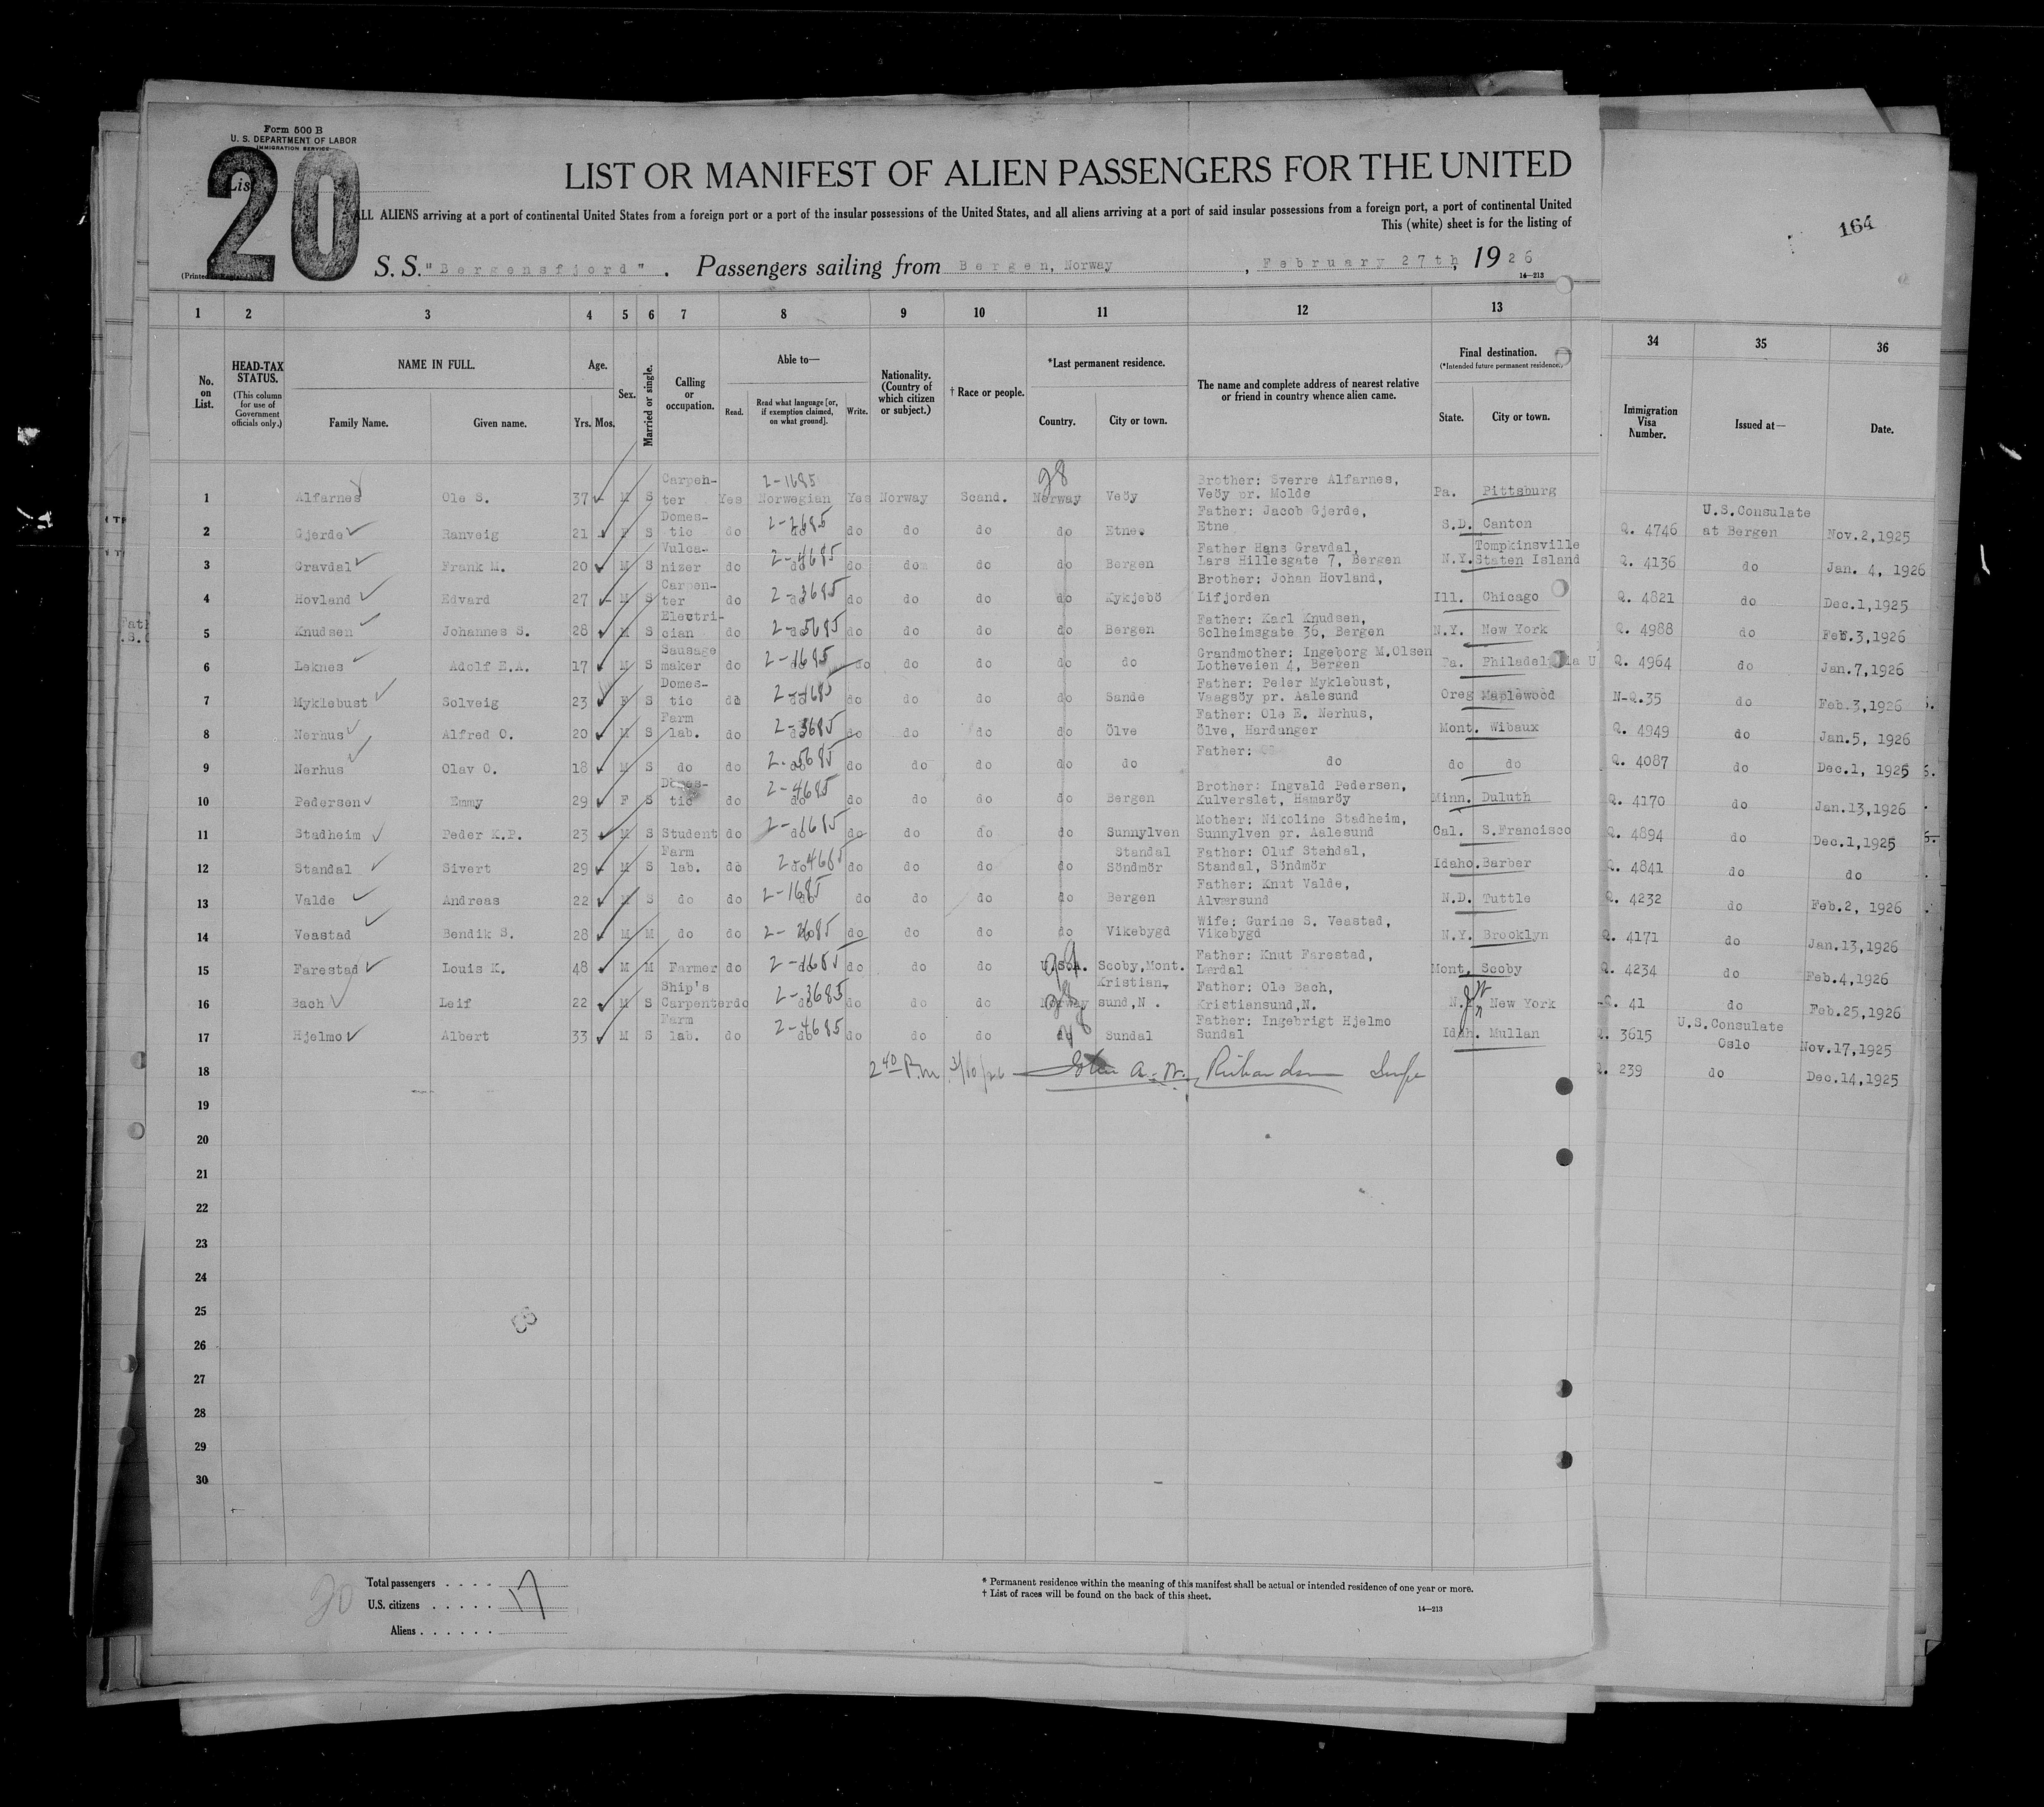 Form 500 B
U. S. DEPARTMENT OF LABOR
IMMIGRATION SERVICE
20
LIST OR MANIFEST OF ALIEN PASSENGERS FOR THE UNITED
ALL ALIENS arriving at a port of continental United States from a foreign port or a port of the insular possessions of the United States, and all aliens arriving at a port of said insular possessions from a foreign port, a port of continental United
This (white) sheet is for the listing of
164
S. S. "Bergensfjord". Passengers sailing from Bergen, Norway, February 27th, 1926
14—213
1 2 3 4 5 6 7 8 9 10 11 12 13 34 35 36
No. on List. HEAD-TAX STATUS. (This column for use of Government officials only.) NAME IN FULL. Family Name. Given name. Age. Yrs. Mos. Sex. Married or single. Calling or occupation. Able to— Read. Read what language [or, if exemption claimed, on what ground]. Write. Nationality. (Country of which citizen or subject.) † Race or people. *Last permanent residence. Country. City or town. The name and complete address of nearest relative or friend in country whence alien came. Final destination. (*Intended future permanent residence.) State. City or town. Immigration Visa Number. Issued at— Date.
1 Alfarnes Ole S. 37 M S Carpenter Yes Norwegian 2-1685 Yes Norway Scand. Norway 28 Veöy Brother: Sverre Alfarnes, Veöy pr. Molde Pa. Pittsburg
2 Gjerde Ranveig 21 F S Domestic do do 2-2685 do do do do Etne. Father: Jacob Gjerde, Etne S.D. Canton Q. 4746 U.S.Consulate at Bergen Nov.2,1925
3 Gravdal Frank M. 20 M S Vulcanizer do do 2-4685 do do do do Bergen Father Hans Gravdal, Lars Hillesgate 7, Bergen N.Y. Tompkinsville Staten Island Q. 4136 do Jan. 4, 1926
4 Hovland Edvard 27 M S Carpenter do do 2-3685 do do do do Kykjebö Brother: Johan Hovland, Lifjorden Ill. Chicago Q. 4821 do Dec.1,1925
5 Knudsen Johannes S. 28 M S Electrician do do 2-5685 do do do do Bergen Father: Karl Knudsen, Solheimsgate 36, Bergen N.Y. New York Q. 4988 do Feb.3,1926
6 Leknes Adolf E.A. 17 M S Sausage maker do do 2-1685 do do do do do Grandmother: Ingeborg M.Olsen Lotheveien 4, Bergen Pa. Q. 4964 do Jan.7,1926
7 Myklebust Solveig 23 F S Domestic do do do do do do Sande Father: Peder Myklebust, Vaagsöy pr. Aalesund Oreg Maplewood N-Q.35 do Feb.3,1926
8 Nerhus Alfred O. 20 M S Farm lab. do do 2-3685 do do do do Ölve Father: Ole E. Nerhus, Ölve, Hardanger Mont. Wibaux Q. 4949 do Jan.5, 1926
9 Nerhus Olav O. 18 M S do do do 2-5685 do do do do do Father: do do do Q. 4087 do Dec.1, 1925
10 Pedersen Emmy 29 F S Domestic do do 2-4685 do do do do Bergen Brother: Ingvald Pedersen, Kulverslet, Hamaröy Minn. Duluth Q. 4170 do Jan.13,1926
11 Stadheim Peder K.P. 23 M S Student do do 2-1685 do do do do Sunnylven Mother: Nikoline Stadheim, Sunnylven pr. Aalesund Cal. S.Francisco Q. 4894 do Dec.1,1925
12 Standal Sivert 29 M S Farm lab. do do 2-4685 do do do do Standal Söndmör Father: Oluf Standal, Standal, Söndmör Idaho. Barber Q. 4841 do do
13 Valde Andreas 22 M S do do do 2-1685 do do do do Bergen Father: Knut Valde, Alversund N.D. Tuttle Q. 4232 do Feb.2, 1926
14 Veastad Bendik S. 28 M M do do do do do do do Vikebygd Wife: Gurine S. Veastad, Vikebygd N.Y. Brooklyn Q. 4171 do Jan.13,1926
15 Farestad Louis K. 48 M M Farmer do do 2-1685 do do do U.S.A. Scoby,Mont. Father: Knut Farestad, Lærdal Mont. Scoby Q. 4234 do Feb.4,1926
16 Bach Leif 22 M S Ship's Carpenter do do 2-3685 do do do Norway 28 Kristiansund,N. Father: Ole Bach, Kristiansund,N. New York 41 do Feb.25,1926
17 Hjelmo Albert 33 M S Farm lab. do do 2-4685 do do do do 28 Sundal Father: Ingebrigt Hjelmo Sundal Idah. Mullan Q. 3615 U.S.Consulate Oslo Nov.17,1925
18 2 40 P.m. 3/10/26 John A. W. Richardson Q. 239 do Dec.14,1925
19
20
21
22
23
24
25
26
27
28
29
30
20
Total passengers . . . . 17
U.S. citizens . . . . .
Aliens . . . . . .
* Permanent residence within the meaning of this manifest shall be actual or intended residence of one year or more.
† List of races will be found on the back of this sheet.
14—213